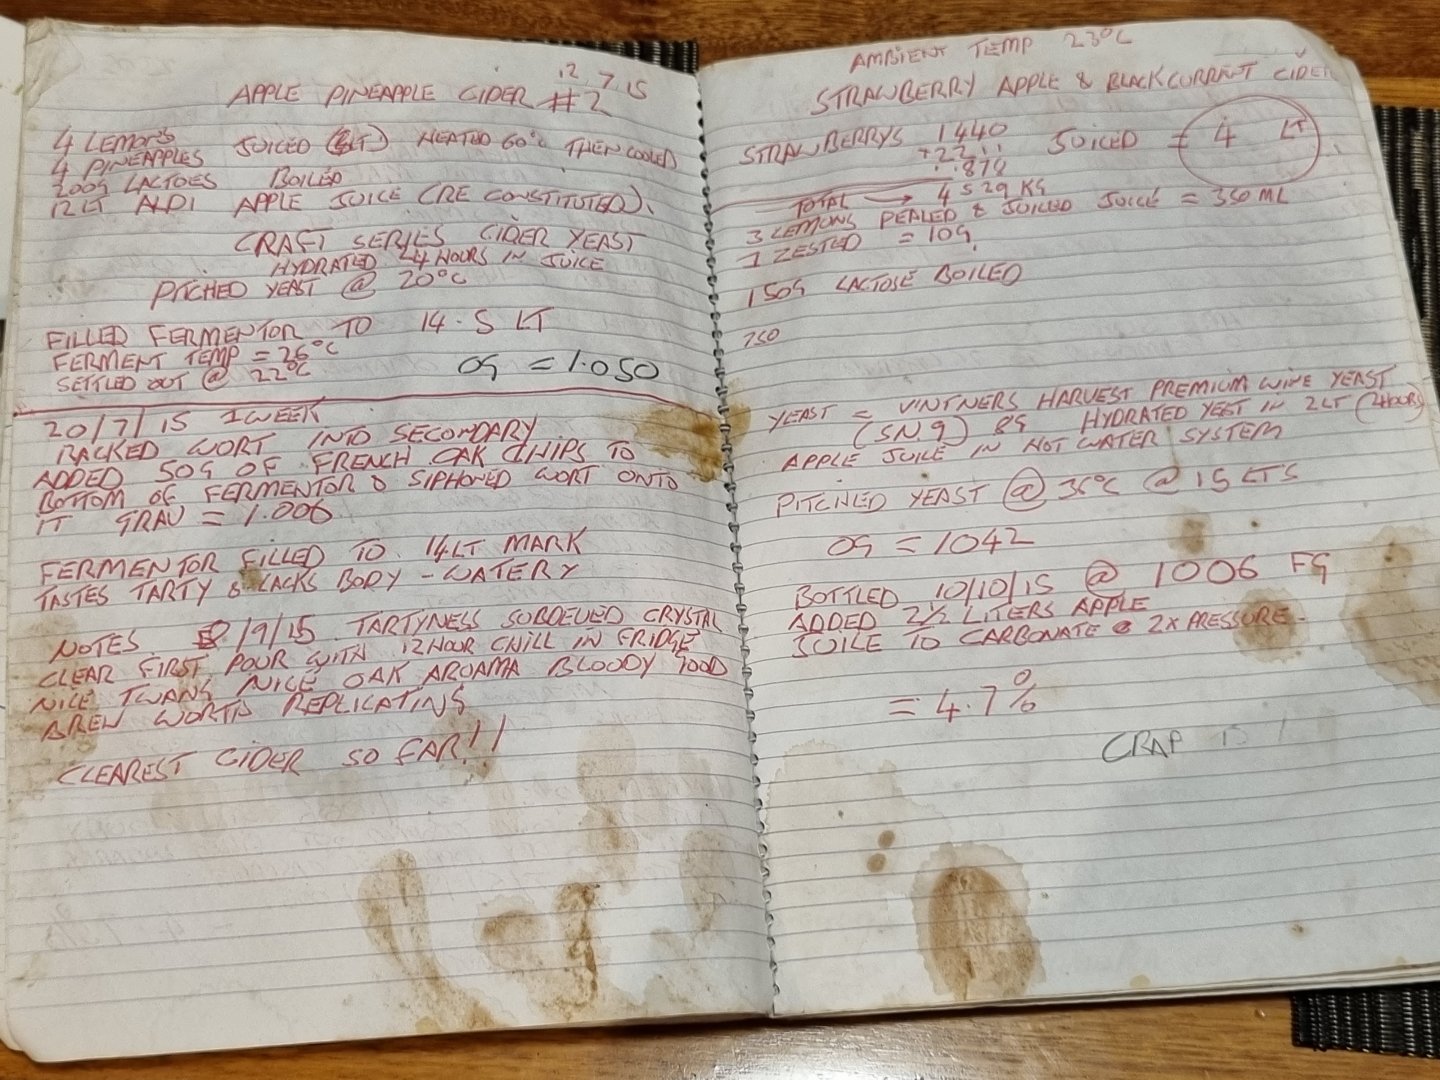 12 7.15
APPLE PINEAPPLE CIDER #2
4 LEMONS
4 PINEAPPLES JUICED HEATED 60°C THEN COOLED
200G LACTOES BOILED
12 LT ALDI APPLE JUICE (RE CONSTITUTED).
CRAFT SERIES CIDER YEAST
HYDRATED 24 HOURS IN JUICE
PITCHED YEAST @ 20°C
FILLED FERMENTOR TO 14.5 LT
FERMENT TEMP = 26°C
SETTLED OUT @ 22°C
OG = 1.050
20/7/15 1WEEK
RACKED WORT INTO SECONDARY
ADDED 50G OF FRENCH OAK CHIPS TO
BOTTOM OF FERMENTOR & SIPHONED WORT ONTO
IT GRAV = 1.006
FERMENTOR FILLED TO 14LT MARK
TASTES TARTY & LACKS BODY - WATERY
NOTES /9/15 TARTYNESS SUBDEUED CRYSTAL
CLEAR FIRST POUR WITH 12HOUR CHILL IN FRIDGE
NICE TWANG NICE OAK AROAMA BLOODY GOOD
BREW WORTH REPLICATING
CLEAREST CIDER SO FAR!!
AMBIENT TEMP 23°C
STRAWBERRY APPLE & BLACKCURRENT CIDER
STRAWBERRYS 1440 JUICED = 4 LT
+2211
.878
TOTAL → 4529 KG
3 LEMONS PEALED & JUICED JUICE = 350 ML
1 ZESTED = 10G.
150G LACTOSE BOILED
750
YEAST = VINTNERS HARVEST PREMIUM WINE YEAST
(SN9) 8G HYDRATED YEST IN 2LT (2HOURS)
APPLE JUICE IN HOT WATER SYSTEM
PITCHED YEAST @ 36°C @ 15 LTS
OG = 1042
BOTTLED 10/10/15 @ 1006 FG
ADDED 2½ LITERS APPLE
JUICE TO CARBONATE @ 2X PRESSURE.
= 4.7%
CRAP